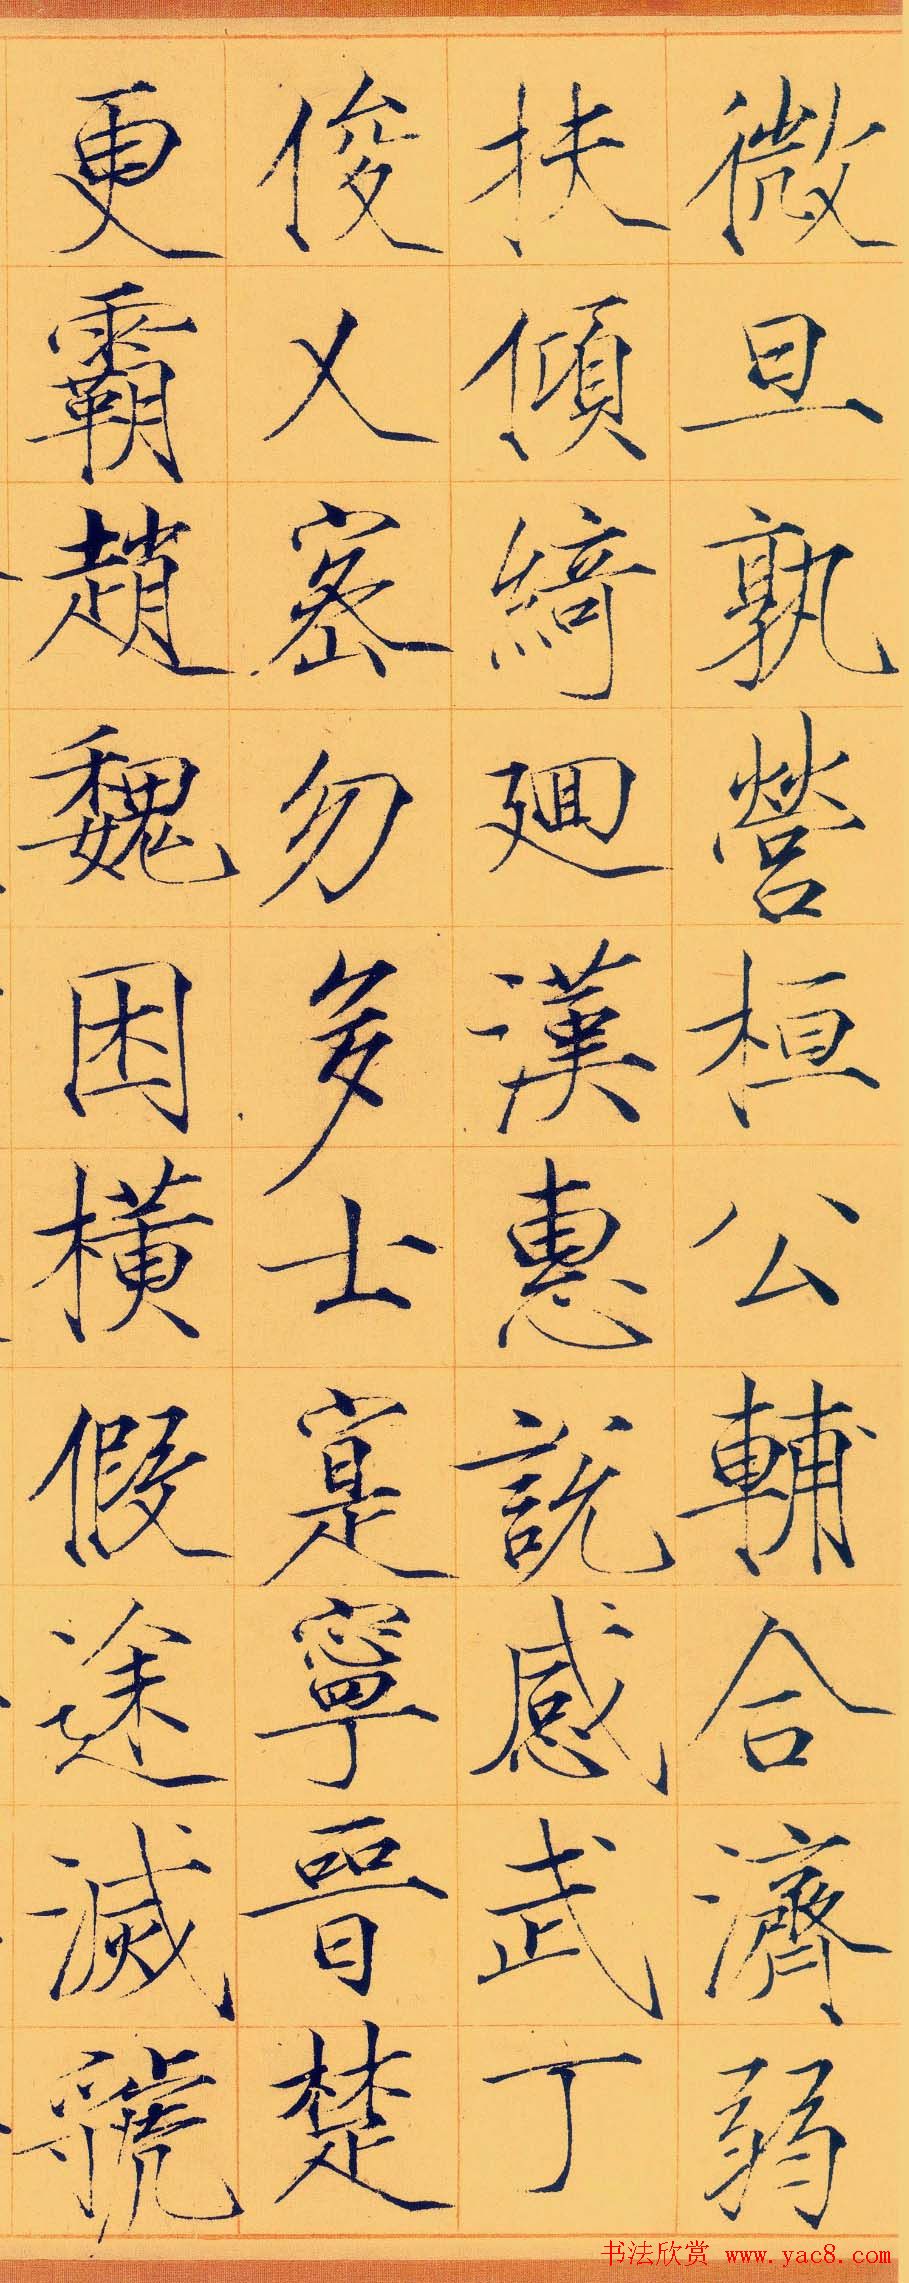 微旦孰營桓公輔合濟弱
扶傾綺迴漢惠說感武丁
俊乂密勿多士寔寧晉楚
更霸趙魏困橫假途滅虢
书法欣赏 www.yac8.com